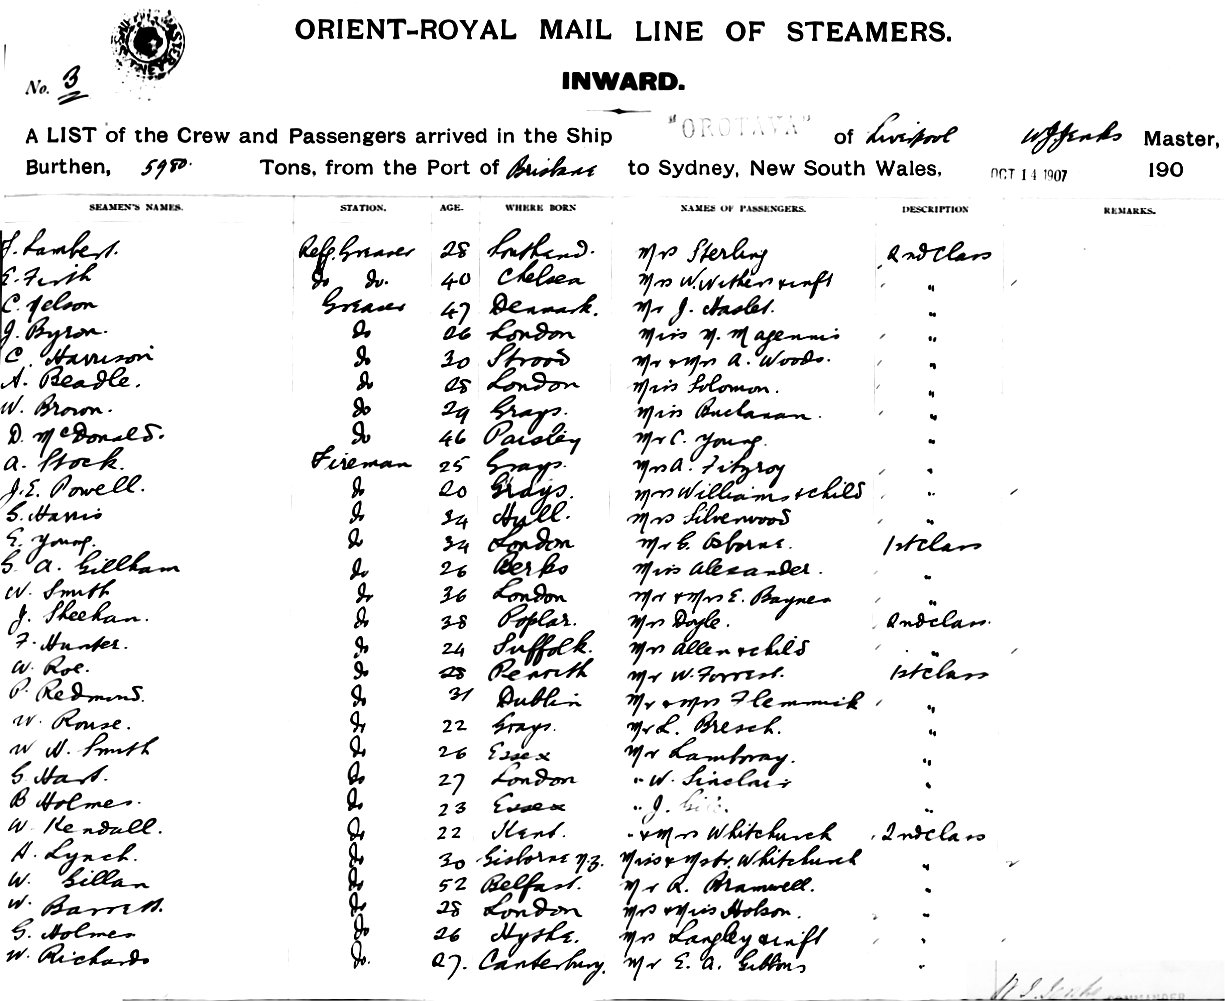 ORIENT-ROYAL MAIL LINE OF STEAMERS.
No. 3
INWARD.
A LIST of the Crew and Passengers arrived in the Ship "OROTAVA" of Liverpool W J Jenks Master,
Burthen, 5980. Tons, from the Port of Brisbane to Sydney, New South Wales, OCT 14 1907 190
SEAMEN'S NAMES. STATION. AGE. WHERE BORN NAMES OF PASSENGERS. DESCRIPTION REMARKS.
J. Lambert. Refg. Greaser 28 Southend. Mrs Sterling 2nd Class
E. Firth do do. 40 Chelsea Mrs W. Wither & inft "
C. Nelson Greaser 47 Denmark. Mr J. Haslet. "
J. Byron. do 26 London Miss M. Magennis "
C. Harrison do 30 Strood Mr & Mrs A. Woods. "
A. Beadle. do 28 London Miss Solomon. "
W. Brown. do 29 Grays. Miss Buchanan. "
D. McDonald. do 46 Paisley Mr C. Young. "
A. Stock. Fireman 25 Grays. Mrs A. Fitzroy "
J.E. Powell. do 20 Grays. Mrs Williams & child "
G. Harris do 34 Hull. Mrs Silverwood "
E. Young. do 34 London Mr G. Osborne. 1st Class
G. A. Gillham do 26 Berks Miss Alexander. "
W. Smith do 36 London Mr & Mrs E. Baynes "
J. Sheehan. do 38 Poplar. Mrs Doyle. 2nd class.
F. Hunter. do 24 Suffolk. Mrs Allen & child "
W. Roe. do 28 Penrith Mr W. Forrest. 1st Class
P. Redmond. do 31 Dublin Mr & Mrs Flemmick "
W. Rouse. do 22 Grays. Mr L. Bresch. "
W H. Smith do 26 Essex Mr Lamboray. "
G Hart. do 27 London " W. Sinclair "
B Holmes. do 23 Essex " J. "
W. Kendall. do 22 Kent. " & Mrs Whitchurch 2nd Class
H. Lynch. do 30 Gisborne N.Z. Miss & Mstr. Whitchurch "
W. Gillan do 52 Belfast. Mr R. Bramwell. "
W. Barrett. do 28 London Mrs & Miss Holson. "
G. Holmes do 26 Hythe. Mrs Langley & inft "
W. Richards do. 27. Canterbury. Mr E. A. Gibbons "
COMMANDER